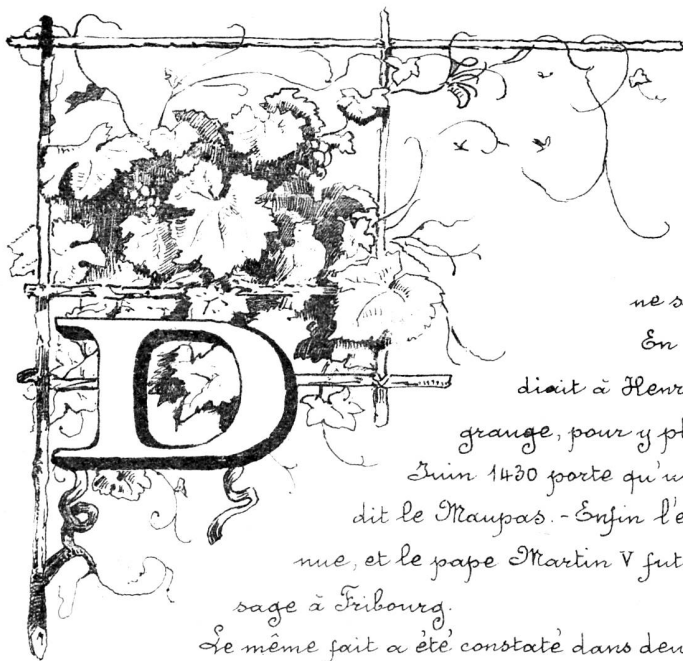 D
ne s
En
disait à Henr
grange, pour y pl
Juin 1430 porte qu'u
dit le Maupas. - Enfin l'é
nue, et le pape Martin V fut
sage à Fribourg.
Le même fait a été constaté dans deu